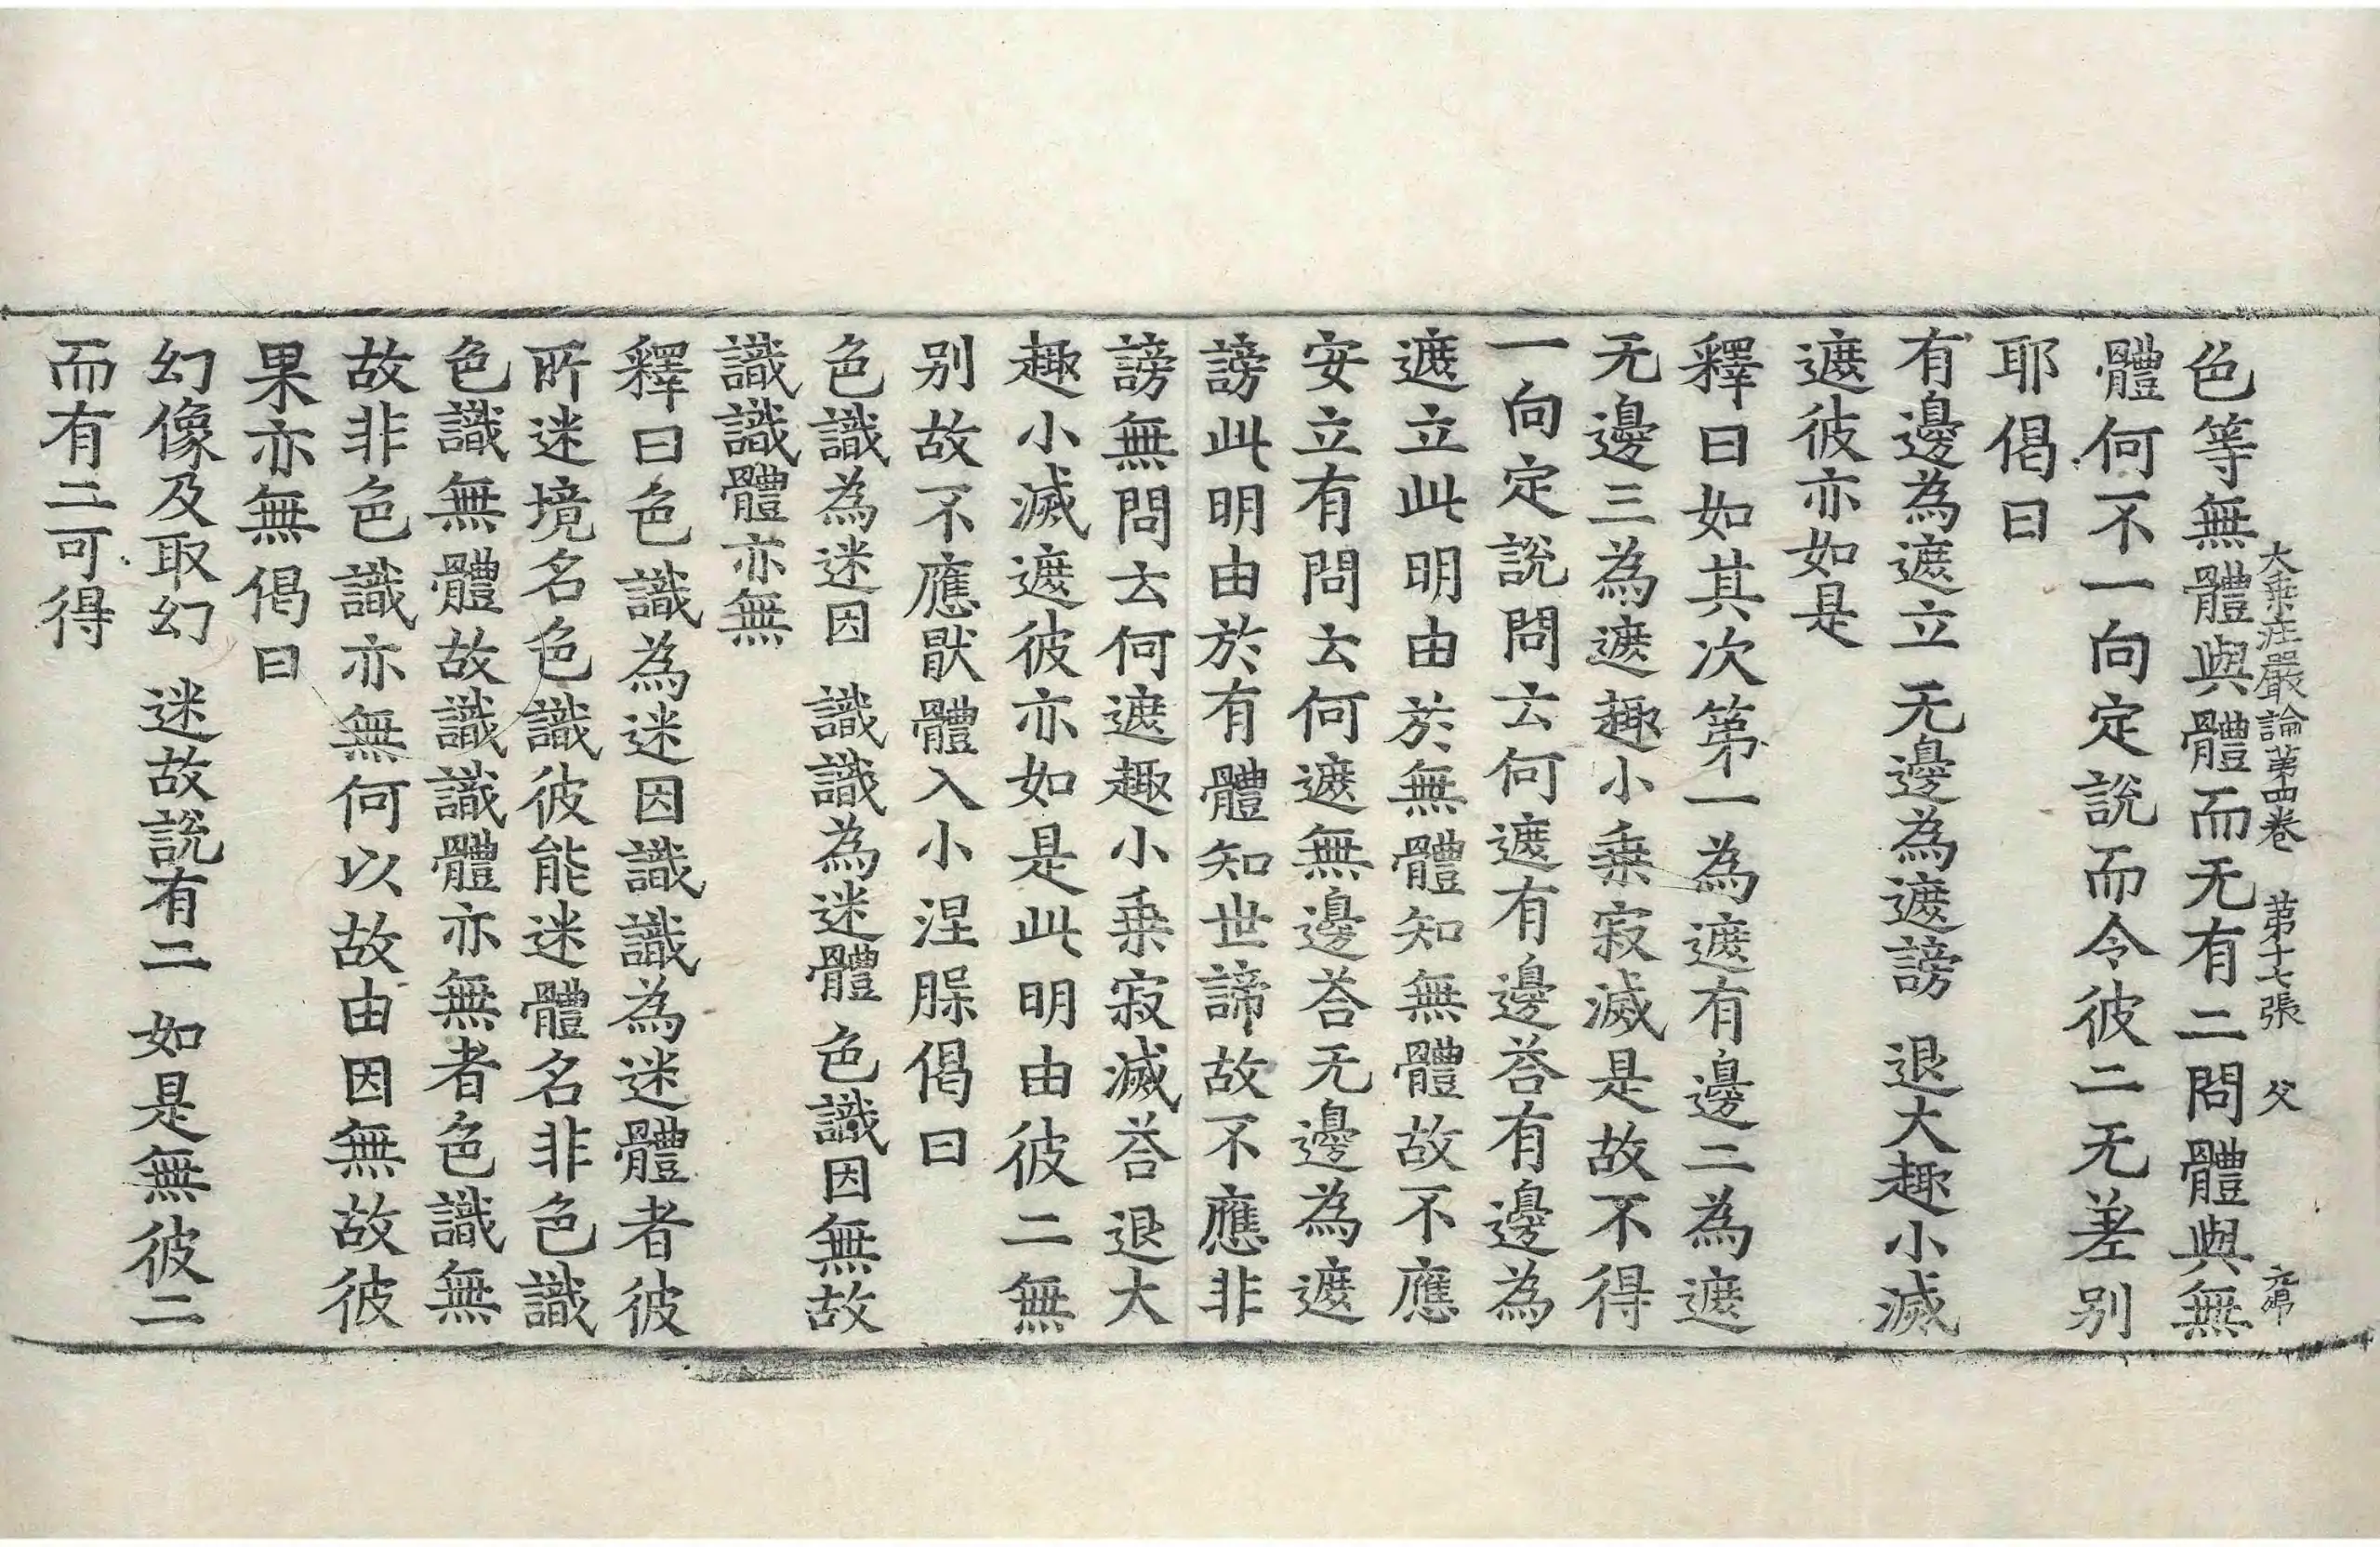 大乗莊嚴論第四卷 第十七張 父
色等無體與體而无有二問體與無
體何不一向定說而令彼二无差别
耶偈曰
有邊為遮立 无邊為遮謗 退大趣小滅
遮彼亦如是
釋曰如其次第一為遮有邊二為遮
无邊三為遮趣小乗寂滅是故不得
一向定說問云何遮有邊荅有邊為
遮立此明由於無體知無體故不應
安立有問云何遮無邊荅无邊為遮
謗此明由於有體知世諦故不應非
謗無問云何遮趣小乗寂滅荅退大
趣小滅遮彼亦如是此明由彼二無
别故不應猒體入小涅腺偈曰
色識為迷因 識識為迷體 色識因無故
識識體亦無
釋曰色識為迷因識識為迷體者彼
所迷境名色識彼能迷體名非色識
色識無體故識識體亦無者色識無
故非色識亦無何以故由因無故彼
果亦無偈曰
幻像及取幻 迷故說有二 如是無彼二
而有二可得